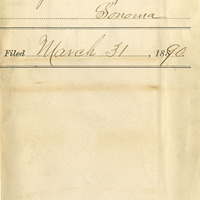 Sonoma
Filed March 31, 1890.